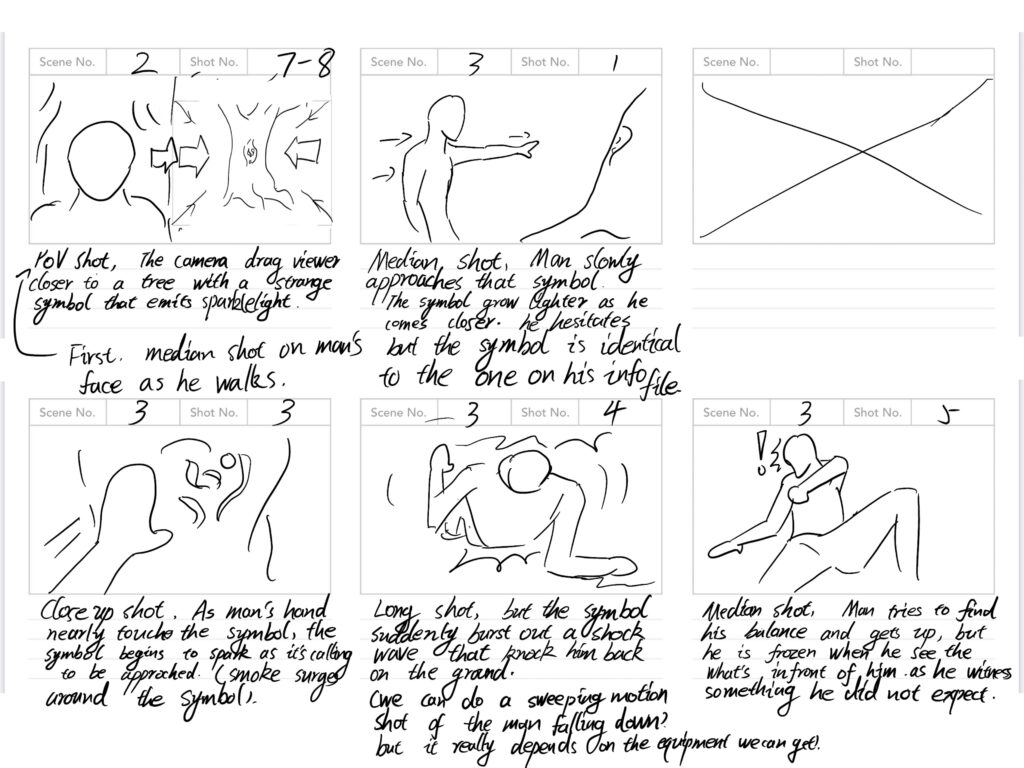 Scene No. 2 Shot No. 7-8
POV shot, The camera drag viewer
closer to a tree with a strange
symbol that emits sparklelight.
First. median shot on man's
face as he walks.
Scene No. 3 Shot No. 1
Median shot, Man slowly
approaches that symbol.
The symbol grow lighter as he
comes closer. he hesitates
but the symbol is identical
to the one on his info
file
Scene No. Shot No.
Scene No. 3 Shot No. 3
Close up shot. As man's hand
nearly touche the symbol, the
symbol begins to spark as it's calling
to be approched. (smoke surges
around the symbol).
Scene No. 3 Shot No. 4
Long shot, but the symbol
suddenly burst out a shock
wave that knock him back
on the ground.
(we can do a sweeping motion
shot of the man falling down?
but it really depends on the equipment we can get).
Scene No. 3 Shot No. 5
!
Median shot, Man tries to find
his balance and gets up, but
he is frozen when he see the
what's infront of him. as he witness
something he did not expect.